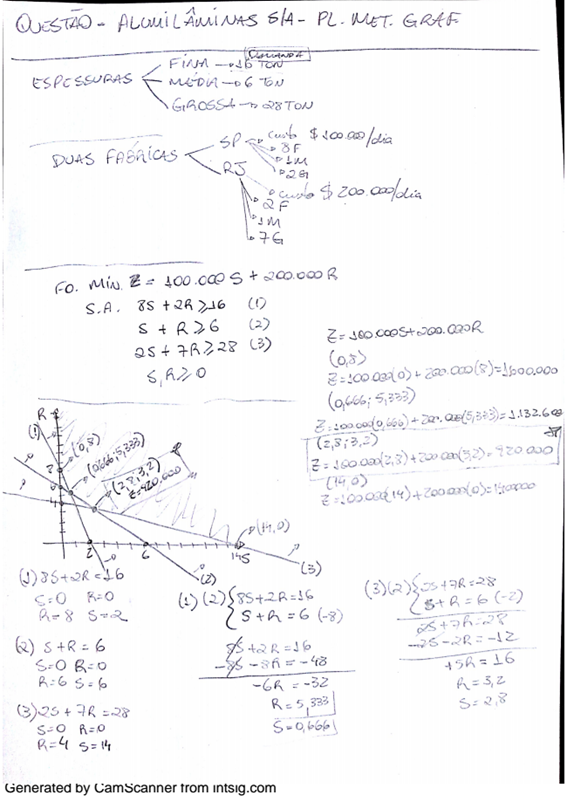 QUESTÃO - ALUMILÂMINAS S/A - PL. MET. GRAF
DEMANDA
ESPESSURAS
FINA → 16 TON
MÉDIA → 6 TON
GROSSA → 28 TON
DUAS FÁBRICAS
SP → custo $ 100.000/dia
8F
1M
2G
RJ → custo $ 200.000/dia
2F
1M
7G
FO. MIN. Z = 100.000 S + 200.000 R
S.A. 8S + 2R ≥ 16 (1)
S + R ≥ 6 (2)
2S + 7R ≥ 28 (3)
S, R ≥ 0
Z = 100.000S + 200.000R
(0,8)
Z = 100.000(0) + 200.000(8) = 1.600.000
(0,666; 5,333)
Z = 100.000(0,666) + 200.000(5,333) = 1.132.600
(2,8; 3,2)
Z = 100.000(2,8) + 200.000(3,2) = 920.000
(14,0)
Z = 100.000(14) + 200.000(0) = 1.400.000
R
(1)
(0,8)
(0,666; 5,333)
(2,8; 3,2)
Z = 920.000
(14,0)
4
2
6
14 S
(2)
(3)
(1) 8S + 2R = 16
S = 0 R = 0
R = 8 S = 2
(2) S + R = 6
S = 0 R = 0
R = 6 S = 6
(3) 2S + 7R = 28
S = 0 R = 0
R = 4 S = 14
(1) (2) { 8S + 2R = 16
S + R = 6 (-8)
8S + 2R = 16
-8S - 8R = -48
-6R = -32
R = 5,333
S = 0,666
(3) (2) { 2S + 7R = 28
S + R = 6 (-2)
2S + 7R = 28
-2S - 2R = -12
+5R = 16
R = 3,2
S = 2,8
Generated by CamScanner from intsig.com